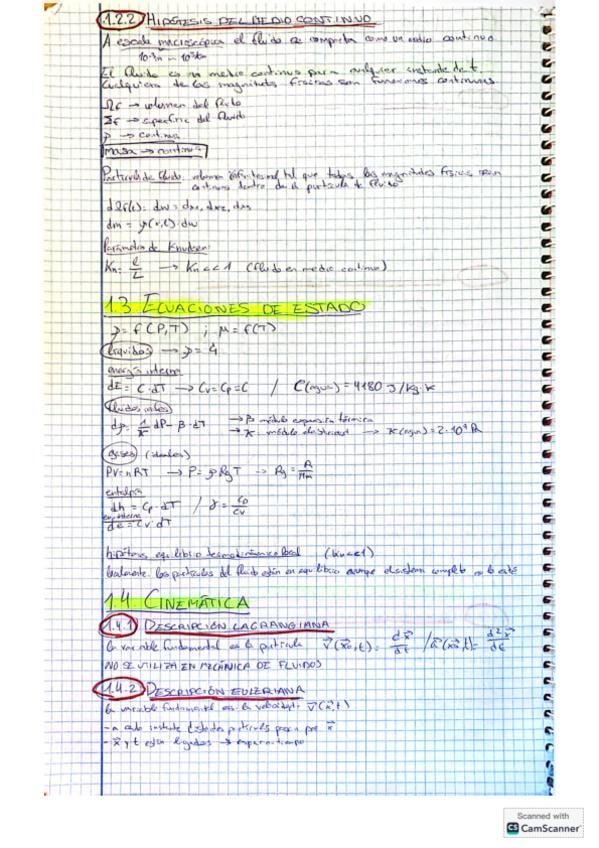 1.2.2 HIPÓTESIS DEL MEDIO CONTINUO
A escala macroscópica el fluido se comporta como un medio continuo
El fluido es un medio continuo para cualquier instante de t
Cualquiera de las magnitudes físicas son funciones continuas
Ωf → volumen del fluido
Σf → superficie del fluido
ρ → continua
masa → continua
Partícula de fluido: volumen infinitesimal tal que todas las magnitudes físicas sean
continuas dentro de la partícula de fluido
dΩf(t): dw = dx₁, dx₂, dx₃
dm = ρ(x,t)·dw
Parámetro de Knudsen:
Kn = ℓ/L → Kn << 1 (fluido en medio continuo)
1.3 ECUACIONES DE ESTADO
ρ = f(P,T) ; μ = f(T)
líquidos → ρ = cte
energía interna
dE = C·dT → Cv = Cp = C / C(agua) = 4180 J/kg·K
fluidos reales
dρ = 1/K dP - β·dT → β módulo expansión térmica
→ K módulo elasticidad → K(agua) = 2·10⁹ Pa
gases (ideales)
PV = nRT → P = ρRgT → Rg = R/Mm
entalpía
dh = Cp·dT / γ = Cp/Cv
en. interna
de = Cv·dT
hipótesis equilibrio termodinámico local (Kn<<1)
localmente las partículas del fluido están en equilibrio aunque el sistema completo no lo esté
1.4 CINEMÁTICA
1.4.1 DESCRIPCIÓN LAGRANGIANA
la variable fundamental es la partícula v(x₀,t) = dx/dt / a(x₀,t) = d²x/dt²
NO SE UTILIZA EN MECÁNICA DE FLUIDOS
1.4.2 DESCRIPCIÓN EULERIANA
la variable fundamental es la velocidad v(x,t)
- a cada instante t partícula pasa por x
- x y t están ligados → espacio-tiempo
Scanned with
CS CamScanner